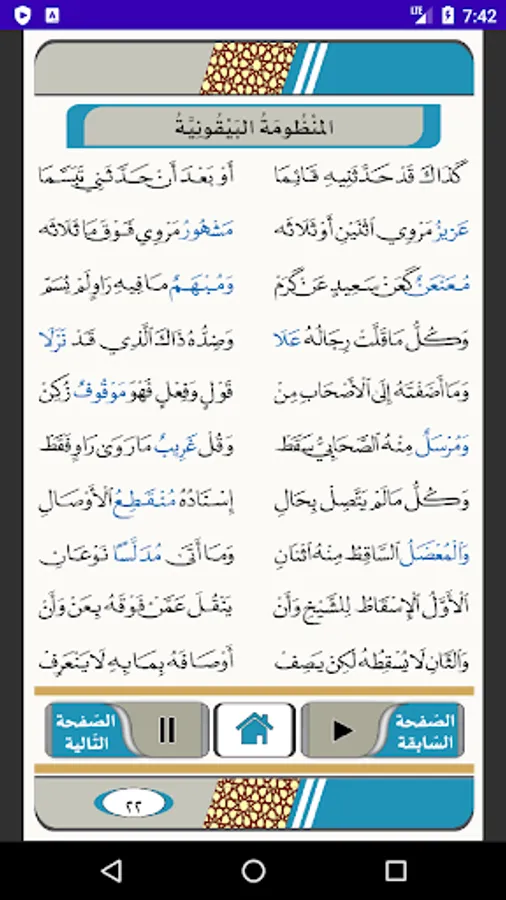 7:42
LTE
A
المَنْظُومَةُ البَيْقُونِيَّةُ
كَذَاكَ قَدْ حَدَّثَنِيهِ قَائِمَا أَوْ بَعْدَ أَنْ حَدَّثَنِي تَبَسَّمَا
عَزِيزُ مَرْوِي اثْنَيْنِ أَوْ ثَلَاثَه مَشْهُورُ مَرْوِي فَوْقَ مَا ثَلَاثَه
مُعَنْعَنٌ كَعَنْ سَعِيدٍ عَنْ كَرَمْ وَمُبْهَمٌ مَا فِيهِ رَاوٍ لَمْ يُسَمْ
وَكُلُّ مَا قَلَّتْ رِجَالُهُ عَلَا وَضِدُّهُ ذَاكَ الَّذِي قَدْ نَزَلَا
وَمَا أَضَفْتَهُ إِلَى الْأَصْحَابِ مِنْ قَوْلٍ وَفِعْلٍ فَهْوَ مَوْقُوفٌ زُكِنْ
وَمُرْسَلٌ مِنْهُ الصَّحَابِيُّ سَقَطْ وَقُلْ غَرِيبٌ مَا رَوَى رَاوٍ فَقَطْ
وَكُلُّ مَا لَمْ يَتَّصِلْ بِحَالِ إِسْنَادُهُ مُنْقَطِعُ الْأَوْصَالِ
وَالْمُعْضَلُ السَّاقِطُ مِنْهُ اثْنَانِ وَمَا أَتَى مُدَلَّسًا نَوْعَانِ
الْأَوَّلُ الْإِسْقَاطُ لِلشَّيْخِ وَأَنْ يَنْقُلَ عَمَّنْ فَوْقَهُ بِعَنْ وَأَنْ
وَالثَّانِ لَا يُسْقِطُهُ لَكِنْ يَصِفْ أَوْصَافَهُ بِمَا بِهِ لَا يَنْعَرِفْ
الصَّفحة السَّابقة
الصَّفحة التَّالية
٢٢